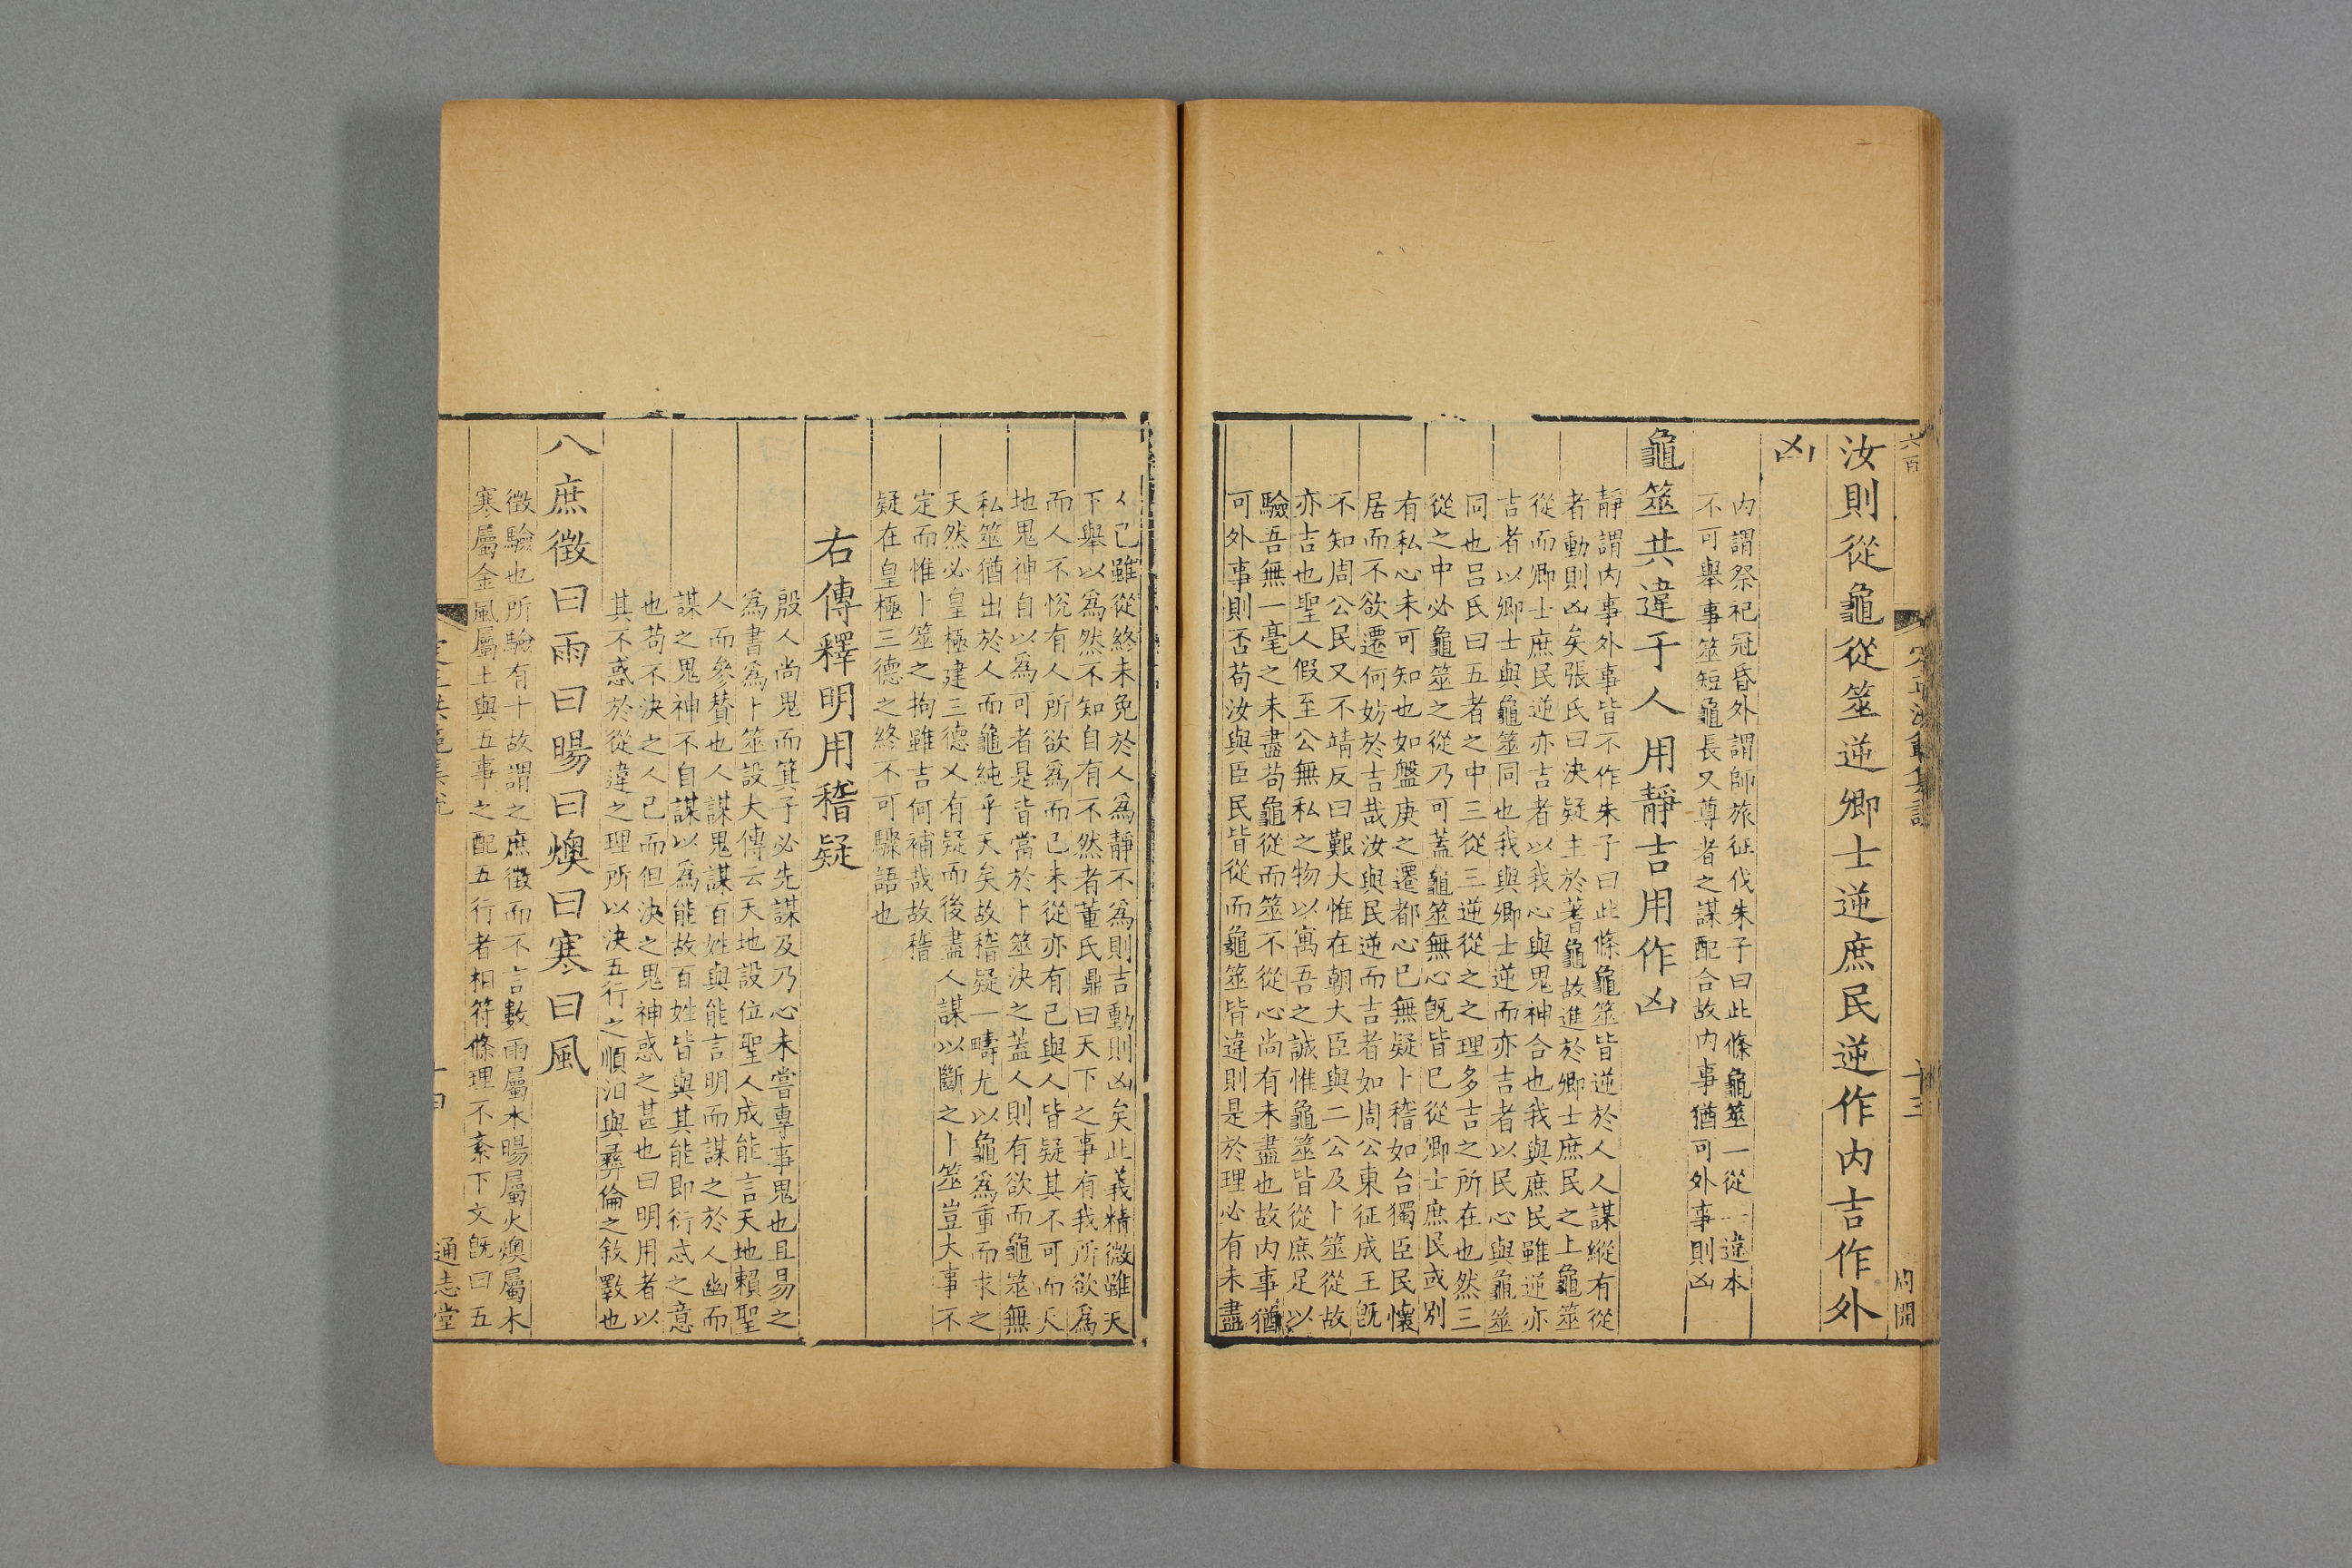 汝則從龜從筮逆卿士逆庶民逆作内吉作外
凶
内謂祭祀冠昏外謂師旅征伐朱子曰此條龜筮一從一違本
不可舉事筮短龜長又尊者之謀配合故内事猶可外事則凶
龜筮共違于人用靜吉用作凶
靜謂内事外事皆不作朱子曰此條龜筮皆逆於人人謀縱有從
者動則凶矣張氏曰決疑主於蓍龜故進於卿士庶民之上龜筮
從而卿士庶民逆亦吉者以我心與鬼神合也我與庶民雖逆亦
吉者以卿士與龜筮同也我與卿士逆而亦吉者以民心與龜筮
同也呂氏曰五者之中三從三逆從之之理多吉之所在也然三
從之中必龜筮之從乃可蓋龜筮無心旣皆已從卿士庶民或别
有私心未可知也如盤庚之遷都心已無疑卜稽如台獨臣民懷
居而不欲遷何妨於吉哉汝與民逆而吉者如周公東征成王旣
不知周公民又不靖反曰艱大惟在朝大臣與二公及卜筮從故
亦吉也聖人假至公無私之物以寓吾之誠惟龜筮皆從庶足以
驗吾無一毫之未盡苟龜從而筮不從心尚有未盡也故内事猶
可外事則否苟汝與臣民皆從而龜筮皆違則是於理必有未盡
人己雖從終未免於人爲靜不爲則吉動則凶矣此義精微雖天
下舉以爲然不知自有不然者董氏鼎曰天下之事有我所欲爲
而人不悅有人所欲爲而己未從亦有己與人皆疑其不可而天
地鬼神自以爲可者是皆當於卜筮決之蓋人則有欲而龜筮無
私筮猶出於人而龜純乎天矣故稽疑一疇尤以龜爲重而求之
天然必皇極建三德乂有疑而後盡人謀以斷之卜筮豈大事不
定而惟卜筮之拘雖吉何補哉故稽
疑在皇極三德之終不可驟語也
右傳釋明用稽疑
殷人尚鬼而箕子必先謀及乃心未嘗專事鬼也且易之
爲書爲卜筮設大傳云天地設位聖人成能言天地賴聖
人而參賛也人謀鬼謀百姓與能言明而謀之於人幽而
謀之鬼神不自謀以爲能故百姓皆與其能即衍忒之意
也苟不決之人己而但決之鬼神惑之甚也曰明用者以
其不惑於從違之理所以決五行之順汩與彞倫之敘斁也
八庶徵曰雨曰暘曰燠曰寒曰風
徵驗也所驗有十故謂之庶徵而不言數雨屬水暘屬火燠屬木
寒屬金風屬土與五事之配五行者相符條理不紊下文旣曰五
通志堂